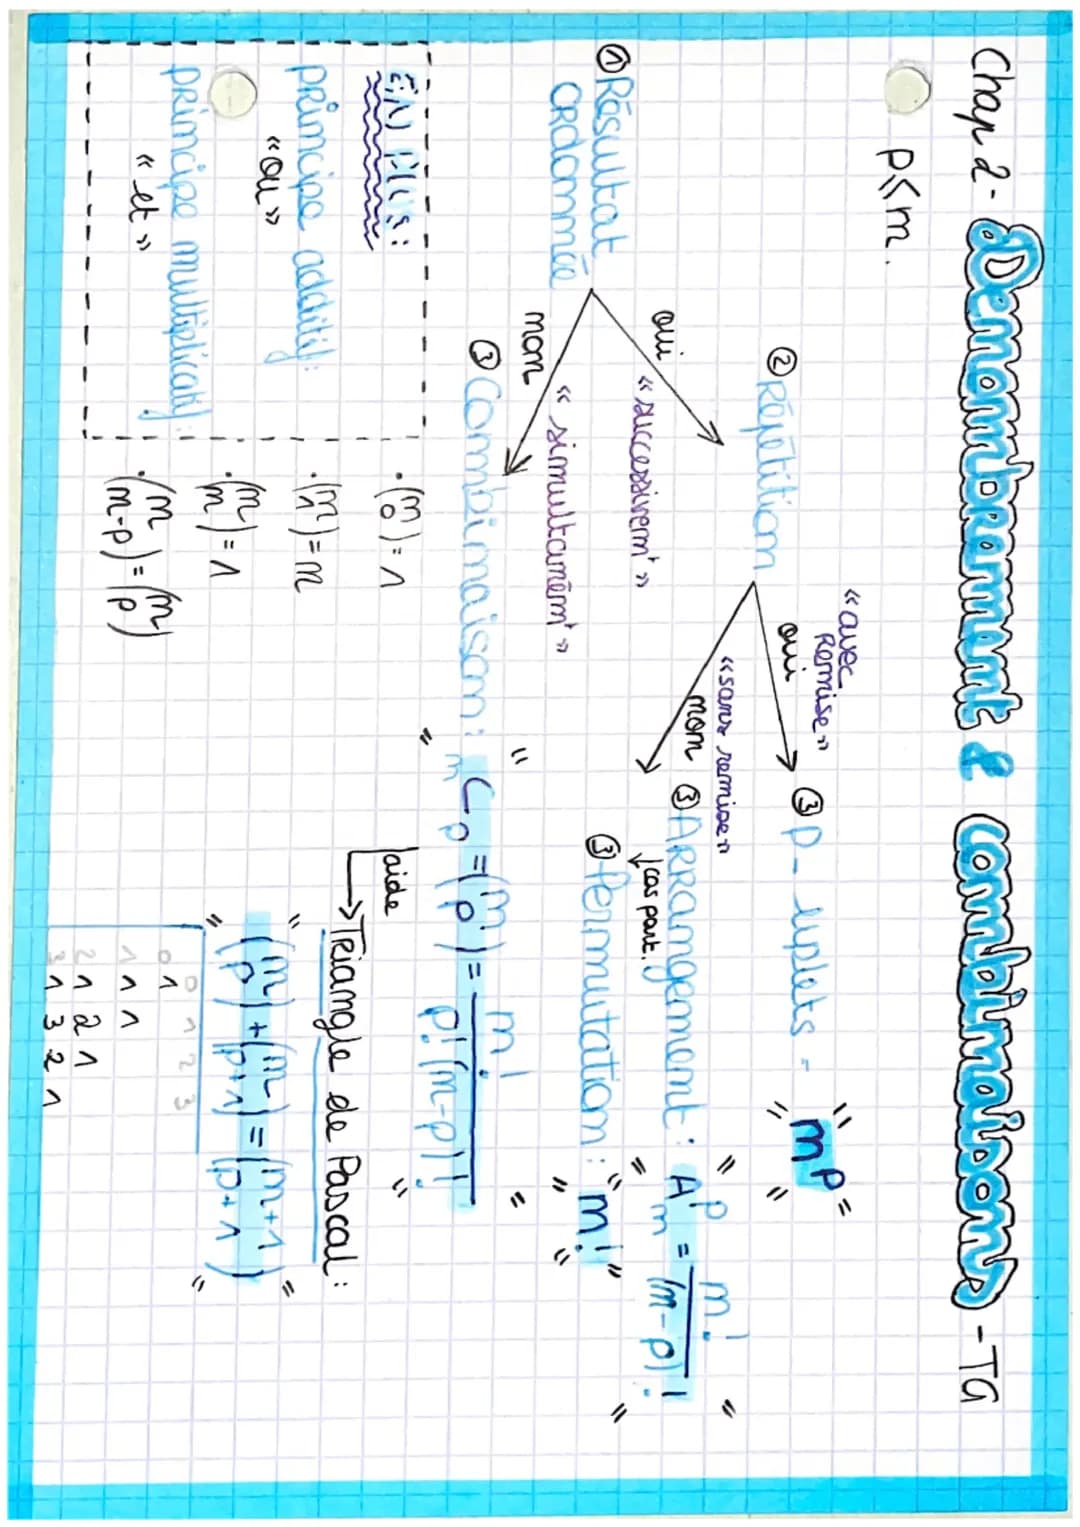 Chap 2 - Dénombrement & combinaisons - TG
p ⩽ n.
② Répétition
« avec
Remise »
oui
③ p-uplets = n^p
① Résultat
ordonnée
oui
« successivem^t »
« sans remise »
non
③ Arrangement : A_n^p = n! / (n-p)!
↓ cas part.
③ Permutation : n!
non
« simultaném^t »
③ Combinaison : nCp = (n p) = n! / p!(n-p)!
EN PLUS :
principe additif :
« ou »
principe multiplicatif :
« et »
• (n 0) = 1
• (n 1) = n
• (n n) = 1
• (n n-p) = (n p)
aide
→ Triangle de Pascal :
(n p) + (n p+1) = (n+1 p+1)
0 1 2 3
0 1
1 1 1
2 1 2 1
3 1 3 2 1